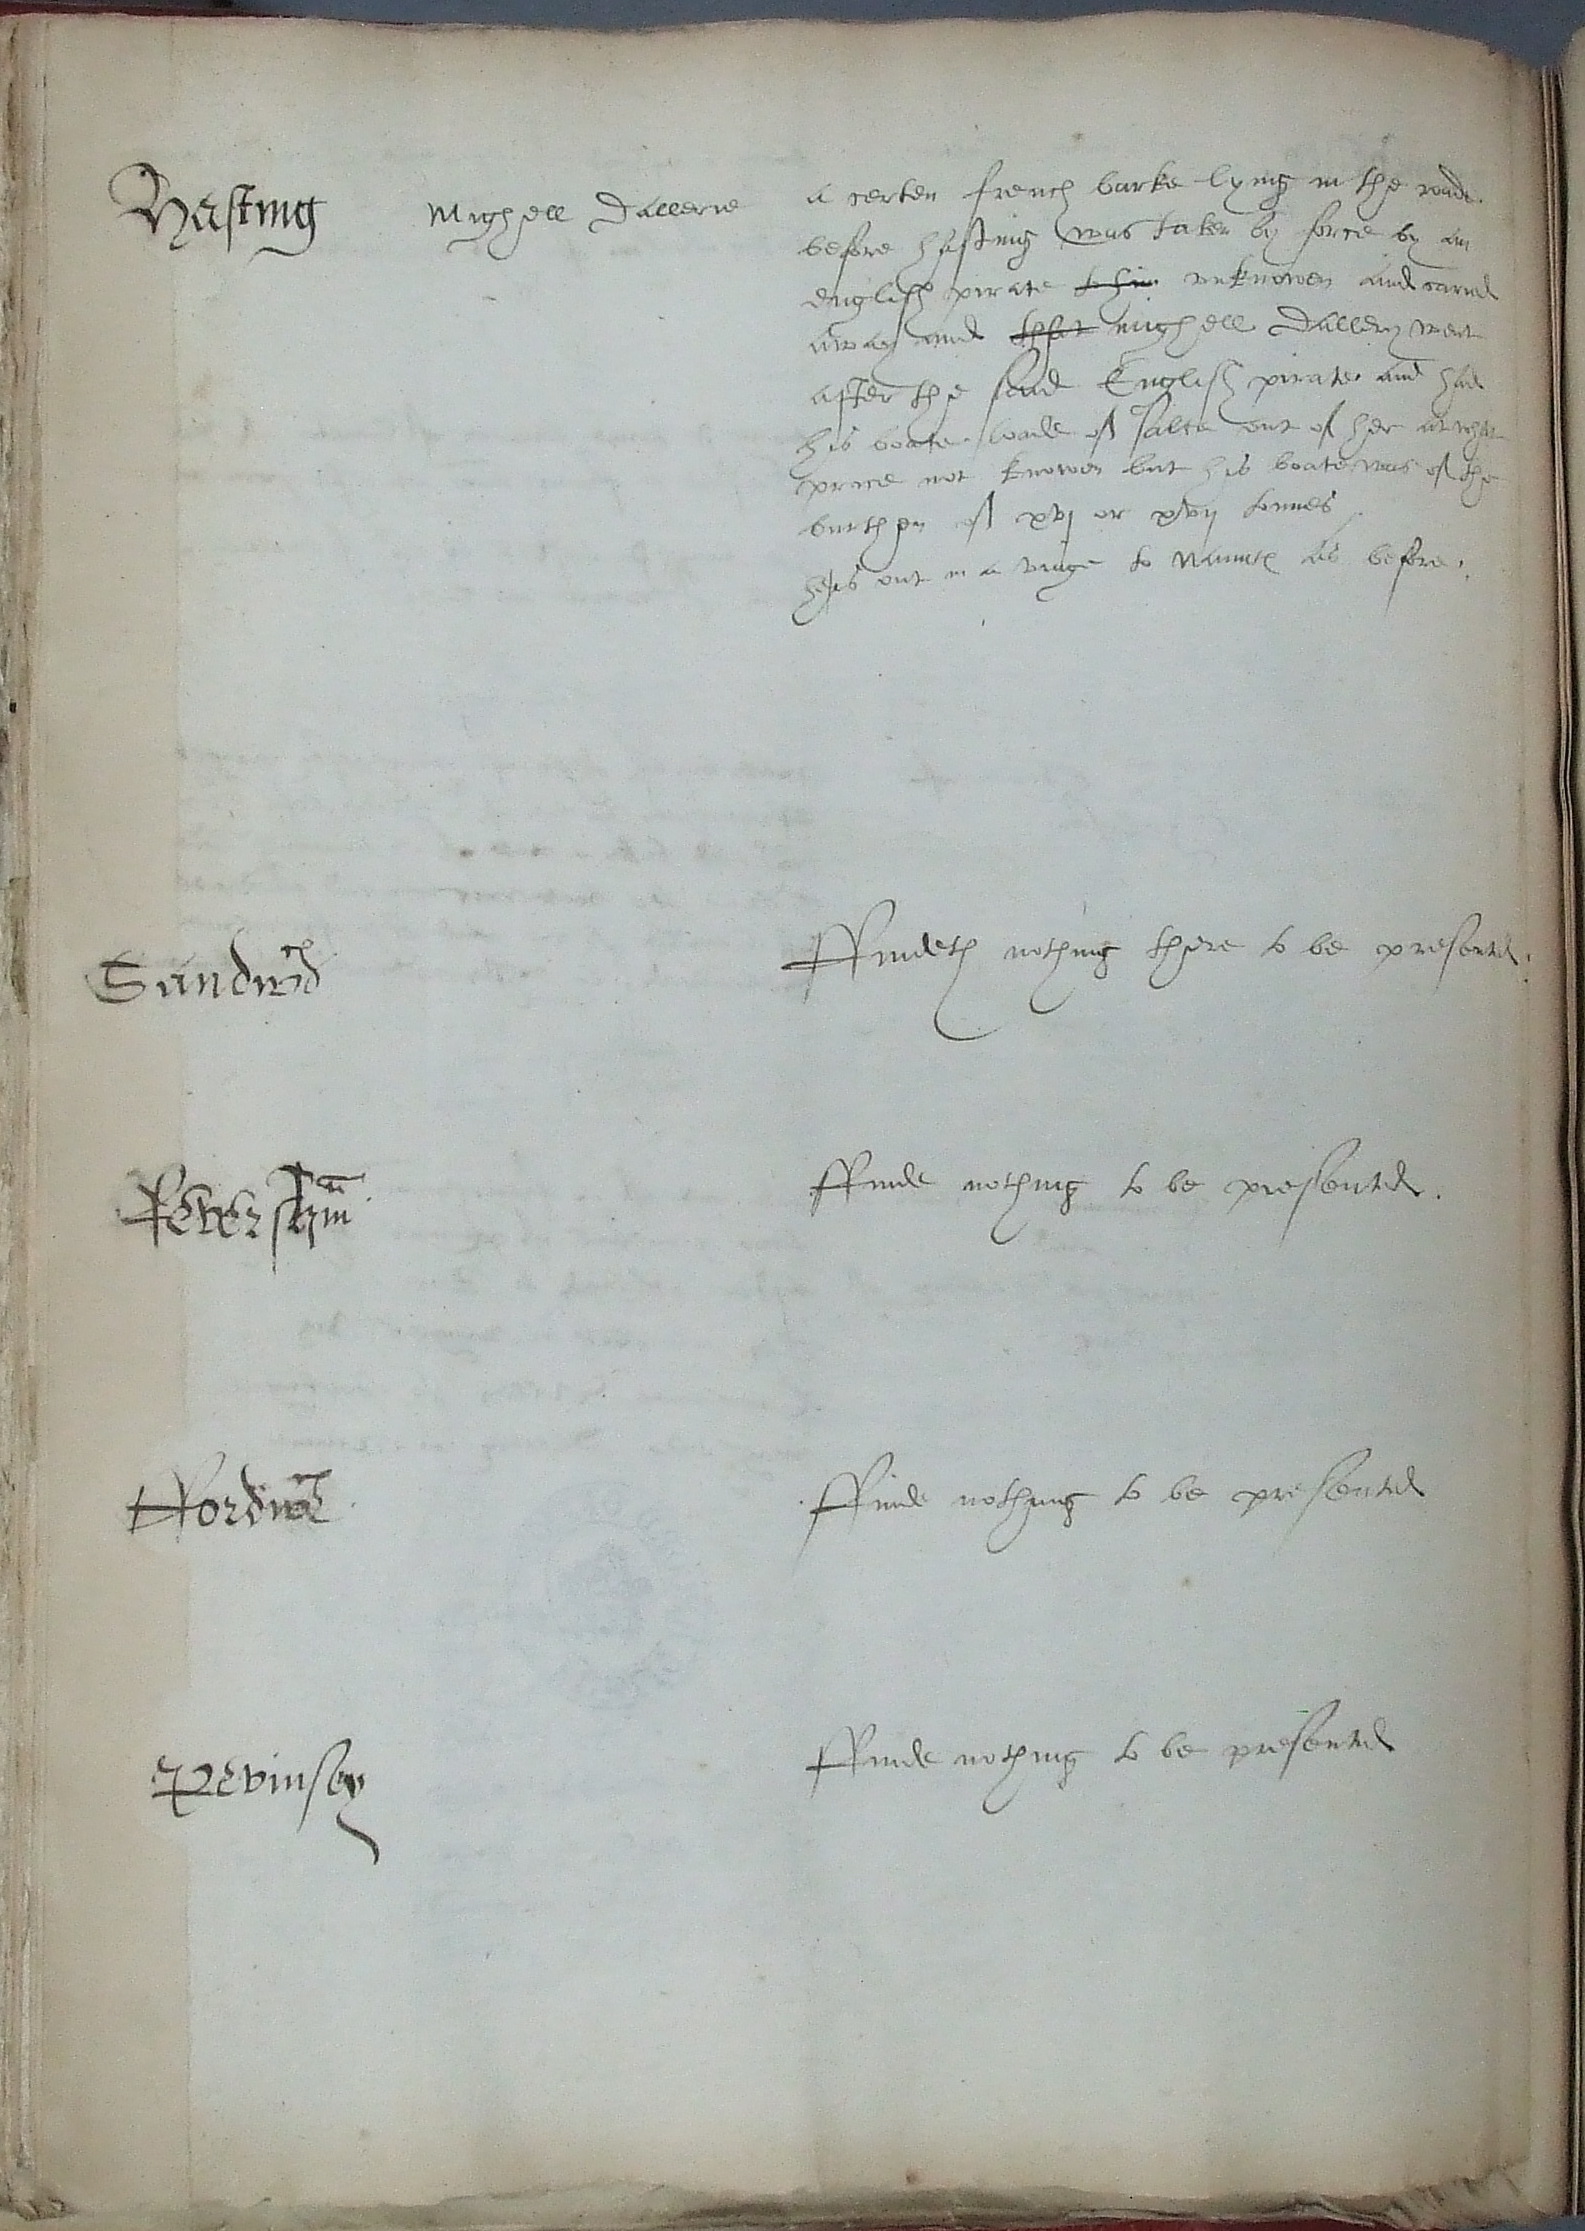 Hasting
Mighell Dallerie
a certen french barke lying in the roade
before hasting was taken by force by an
english pirate unknowen and caried
away and that mighell Dallery went
after the said English pirate and had
his boate loade of salte out of her at what
price not knowen but his boate was of the
burthen of xvj or xvij tonnes
he is out in a viage to as before.
Sandwch
Ffindeth nothing there to be presented.
Feversham
Ffinde nothing to be presented.
Ffordwch
Ffinde nothing to be presented
Pevinsey
Ffinde nothing to be presented